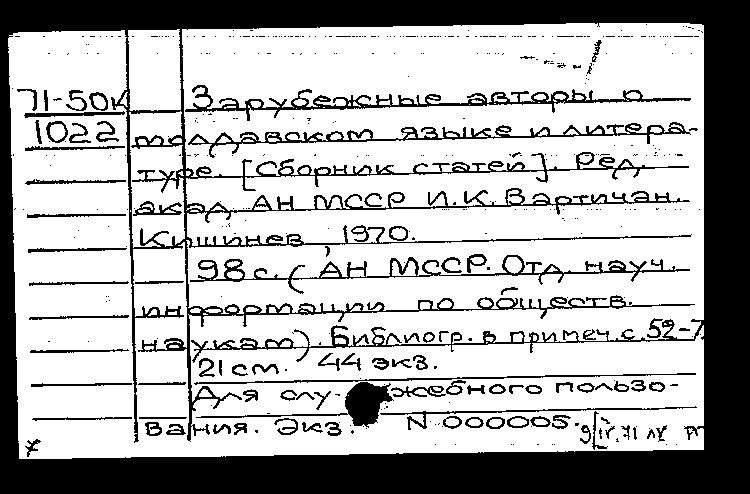 71-50К Зарубежные авторы о
1022 молдавском языке и литера-
туре. [Сборник статей]. Ред.
акад. АН МССР И.К. Вартичан.
Кишинев, 1970.
98 с. (АН МССР. Отд. науч.
информации по обществ.
наукам). Библиогр. в примеч. с. 52-7
21 см. 44 экз.
Для слу- жебного пользо-
вания. Экз. N 000005.